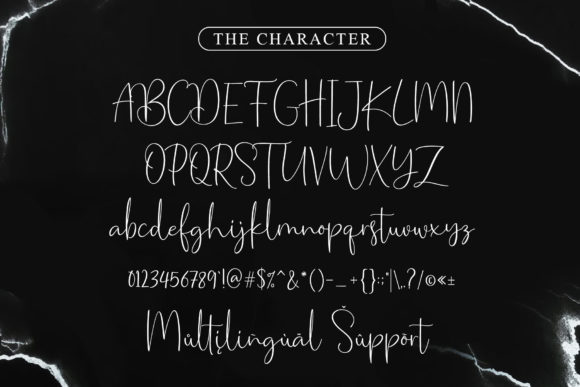 THE CHARACTER
ABCDEFGHIJKLMN
OPQRSTUVWXYZ
abcdefghijklmnopqrstuvwxyz
0123456789'!@#$%^&*()-_+{}:;"|\,.?/©«±
Můltįlıñgùāl Šůppŏrt